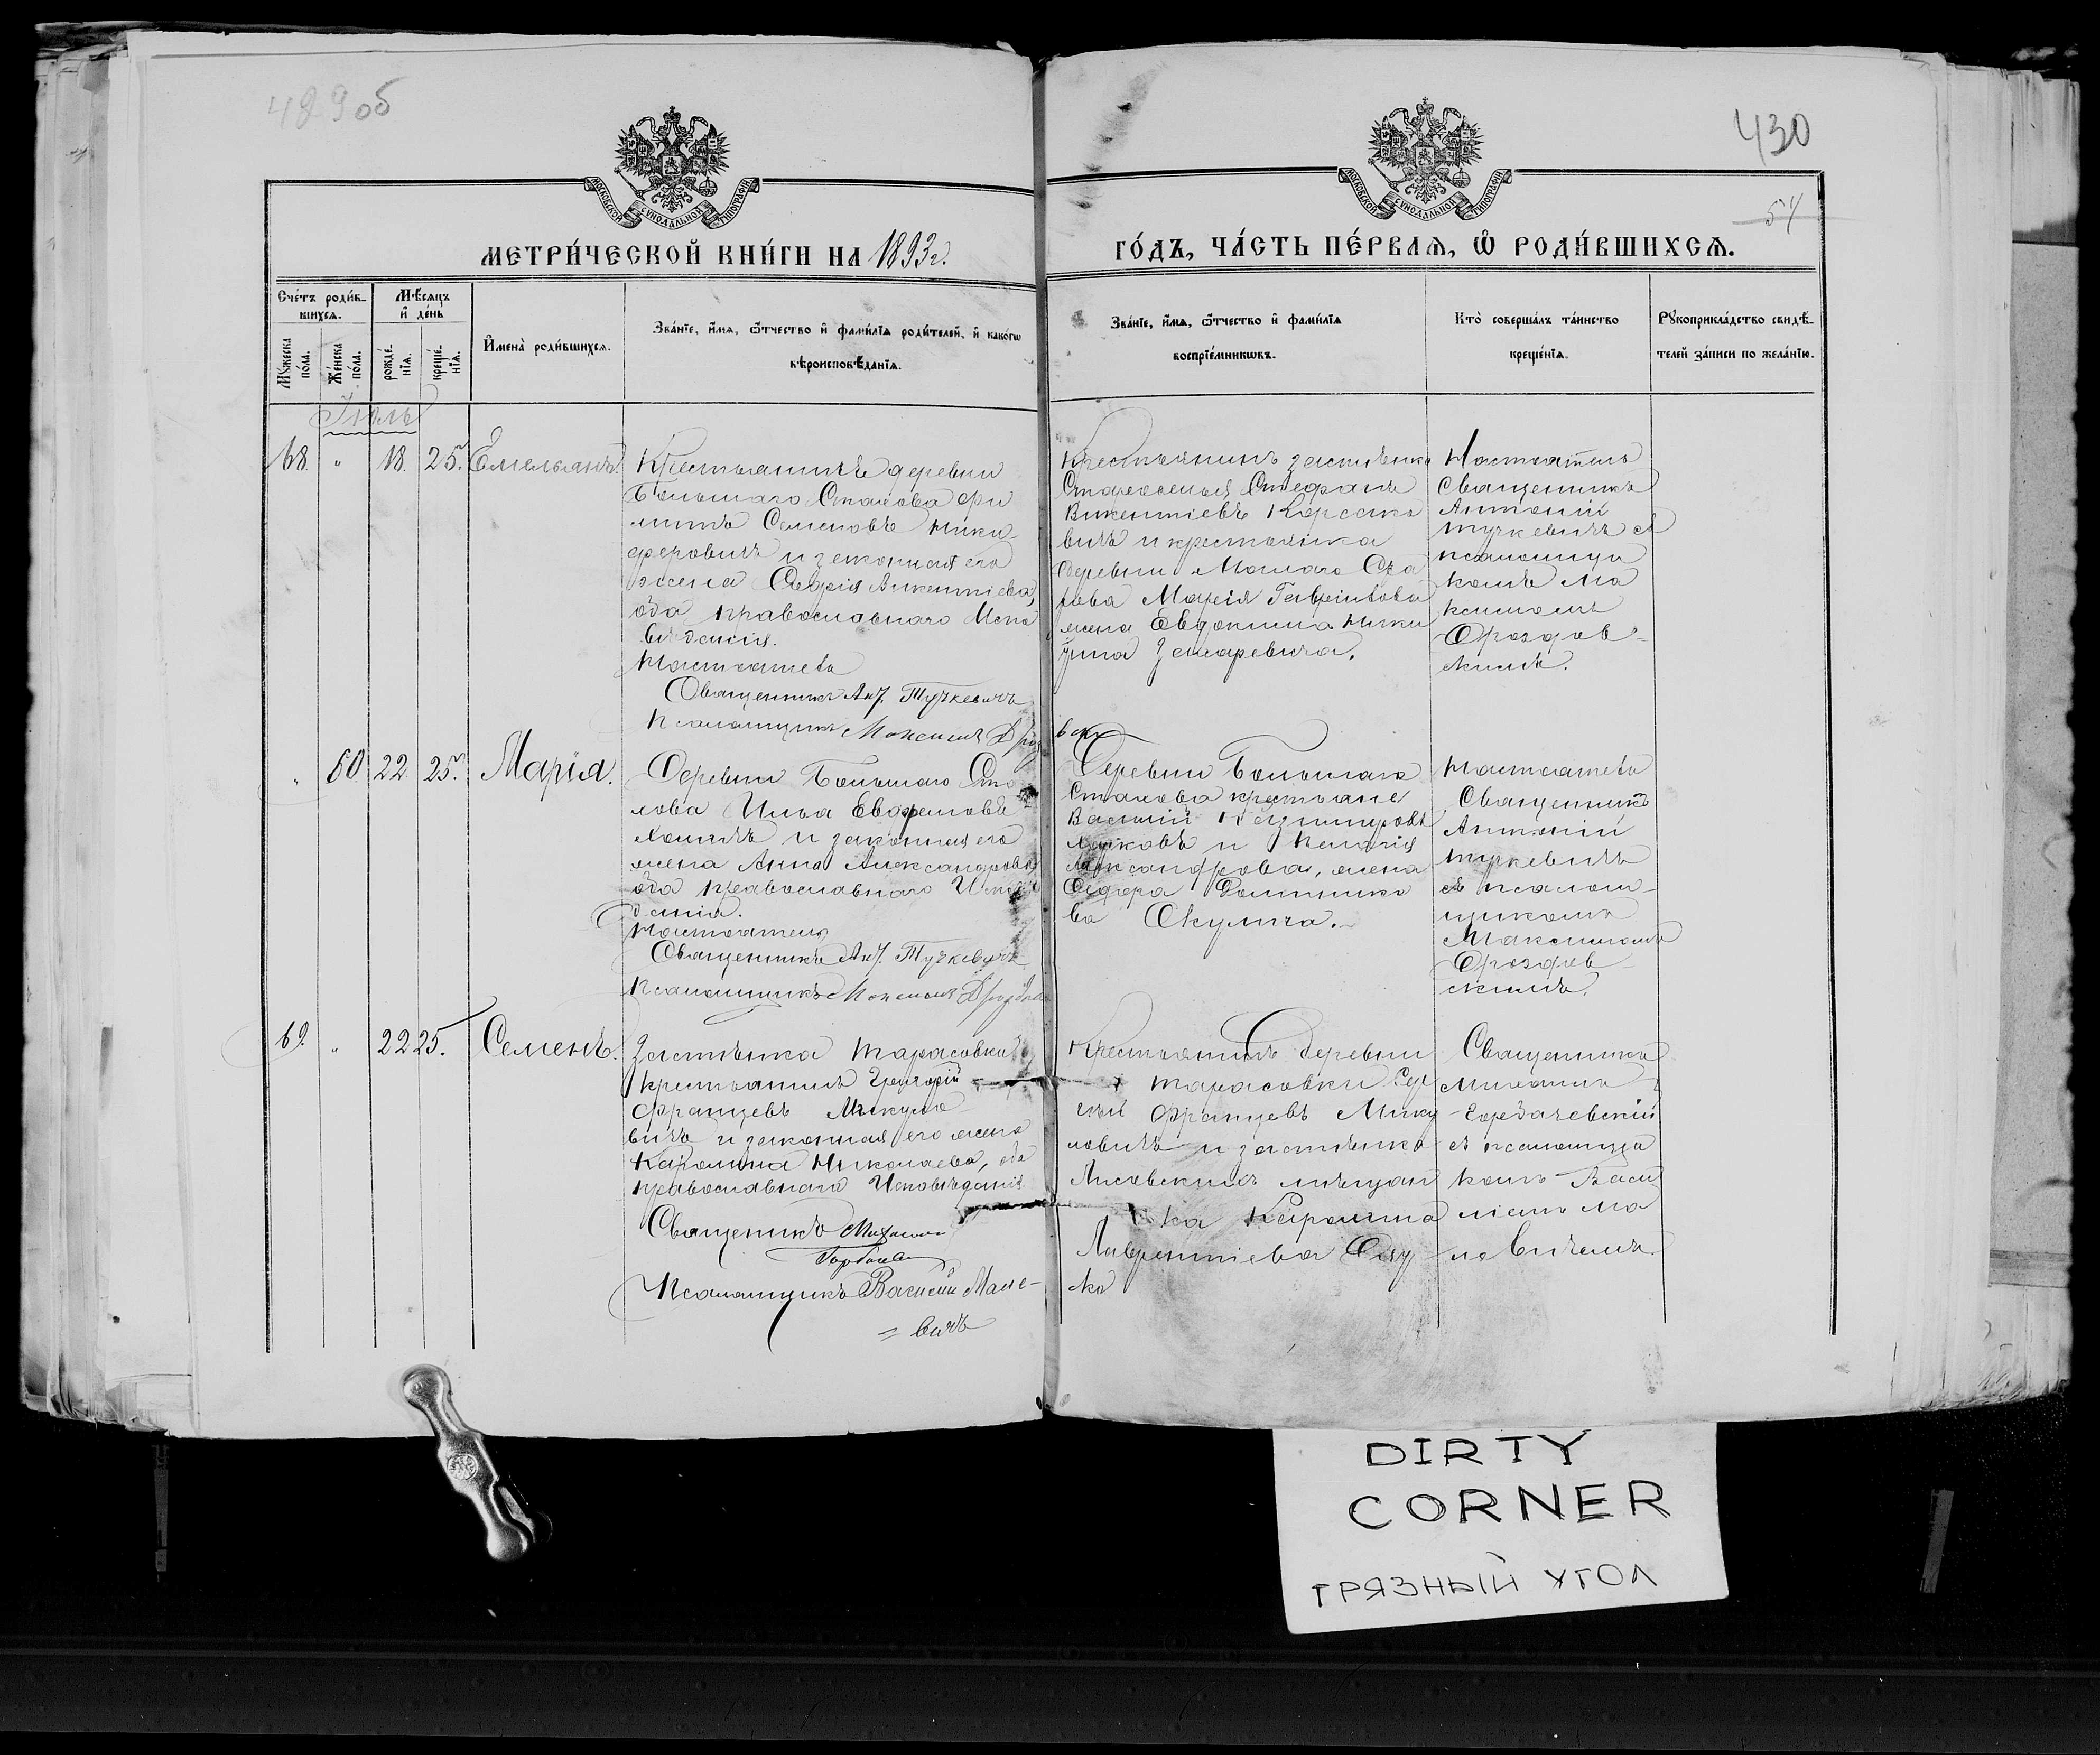 429об
430
54
МОСКОВСКОЙ СУНОДАЛЬНОЙ ТИПОГРАФІИ
МОСКОВСКОЙ СУНОДАЛЬНОЙ ТИПОГРАФІИ
МЕТРИ́ЧЕСКОЙ КНИ́ГИ НА 1893 г.
ГО́ДЪ, ЧА́СТЬ ПЕ́РВАѦ, Ѡ РОДИ́ВШИХСѦ.
Сче́тъ роди́вшихсѧ.
Мꙋ́жеска по́ла.
Же́нска по́ла.
Мѣ́сѧцъ и де́нь
рожде́нїѧ.
креще́нїѧ.
Имена̀ роди́вшихсѧ.
Зва́нїе, и́мѧ, ѻ́тчество и фами́лїѧ роди́телей, и како́гѡ
вѣроисповѣ́данїѧ.
Зва́нїе, и́мѧ, ѻ́тчество и фами́лїѧ
воспрїе́мникѡвъ.
Кто̀ соверша́лъ та́инство
креще́нїѧ.
Рꙋкоприкла́дство свидѣ́-
телей за́писи по жела́нїю.
Іюль
68. " 18. 25. Емельянъ.
Крестьянинъ деревни
Большаго Стахова Фи
липпъ Семеновъ Ники-
форовичъ и законная его
жена Софія Викентіева,
оба православнаго Испо
вѣданія.
Настоятель
Священникъ Ант. Тучкевичъ
Псаломщикъ Максимъ Дроздовскій
Крестьянинъ застѣнка
Стефанъ
Викентіевъ Корсако
вичъ и крестьянка
деревни Малаго Ста
хова Марія Гавріилова
жена Евдокима Ники
Настоятель
Священникъ
Антоній
Тучкевичъ съ
псаломщи
комъ Ма
ксимомъ
Дроздов-
скимъ.
" 60. 22. 25. Марія.
Деревни Большаго Ста
хова Илья Евфремовъ
и законная его
жена Анна Александрова
оба православнаго Исповѣ
данія.
Настоятель
Священникъ Ант. Тучкевичъ
Псаломщикъ Максимъ Дроздовскій
Деревни Большаго
Стахова крестьяне
Василій
и
Александрова, жена
Сидора
ва Окулича.
Настоятель
Священникъ
Антоній
Тучкевичъ
съ псалом-
щикомъ
Максимомъ
Дроздов-
скимъ.
69. " 22 25. Семенъ.
Застѣнка Тарасовки
крестьянинъ Григорій
Францевъ Микуло-
вичъ и законная его жена
Каролина Николаева, оба
православнаго Исповѣданія
Священникъ Михаилъ
Псаломщикъ Василій Мале-
= вичъ
Крестьянинъ деревни
Тарасовки
Францевъ Мику
ловичъ и застѣнка
Лисовскихъ мѣщан
ка Каролина
Лаврентіева
Священникъ
Михаилъ
Горбачевскій
съ псаломщи
комъ Васи
ліемъ Ма
левичемъ.
DIRTY
CORNER
ГРЯЗНЫЙ УГОЛ